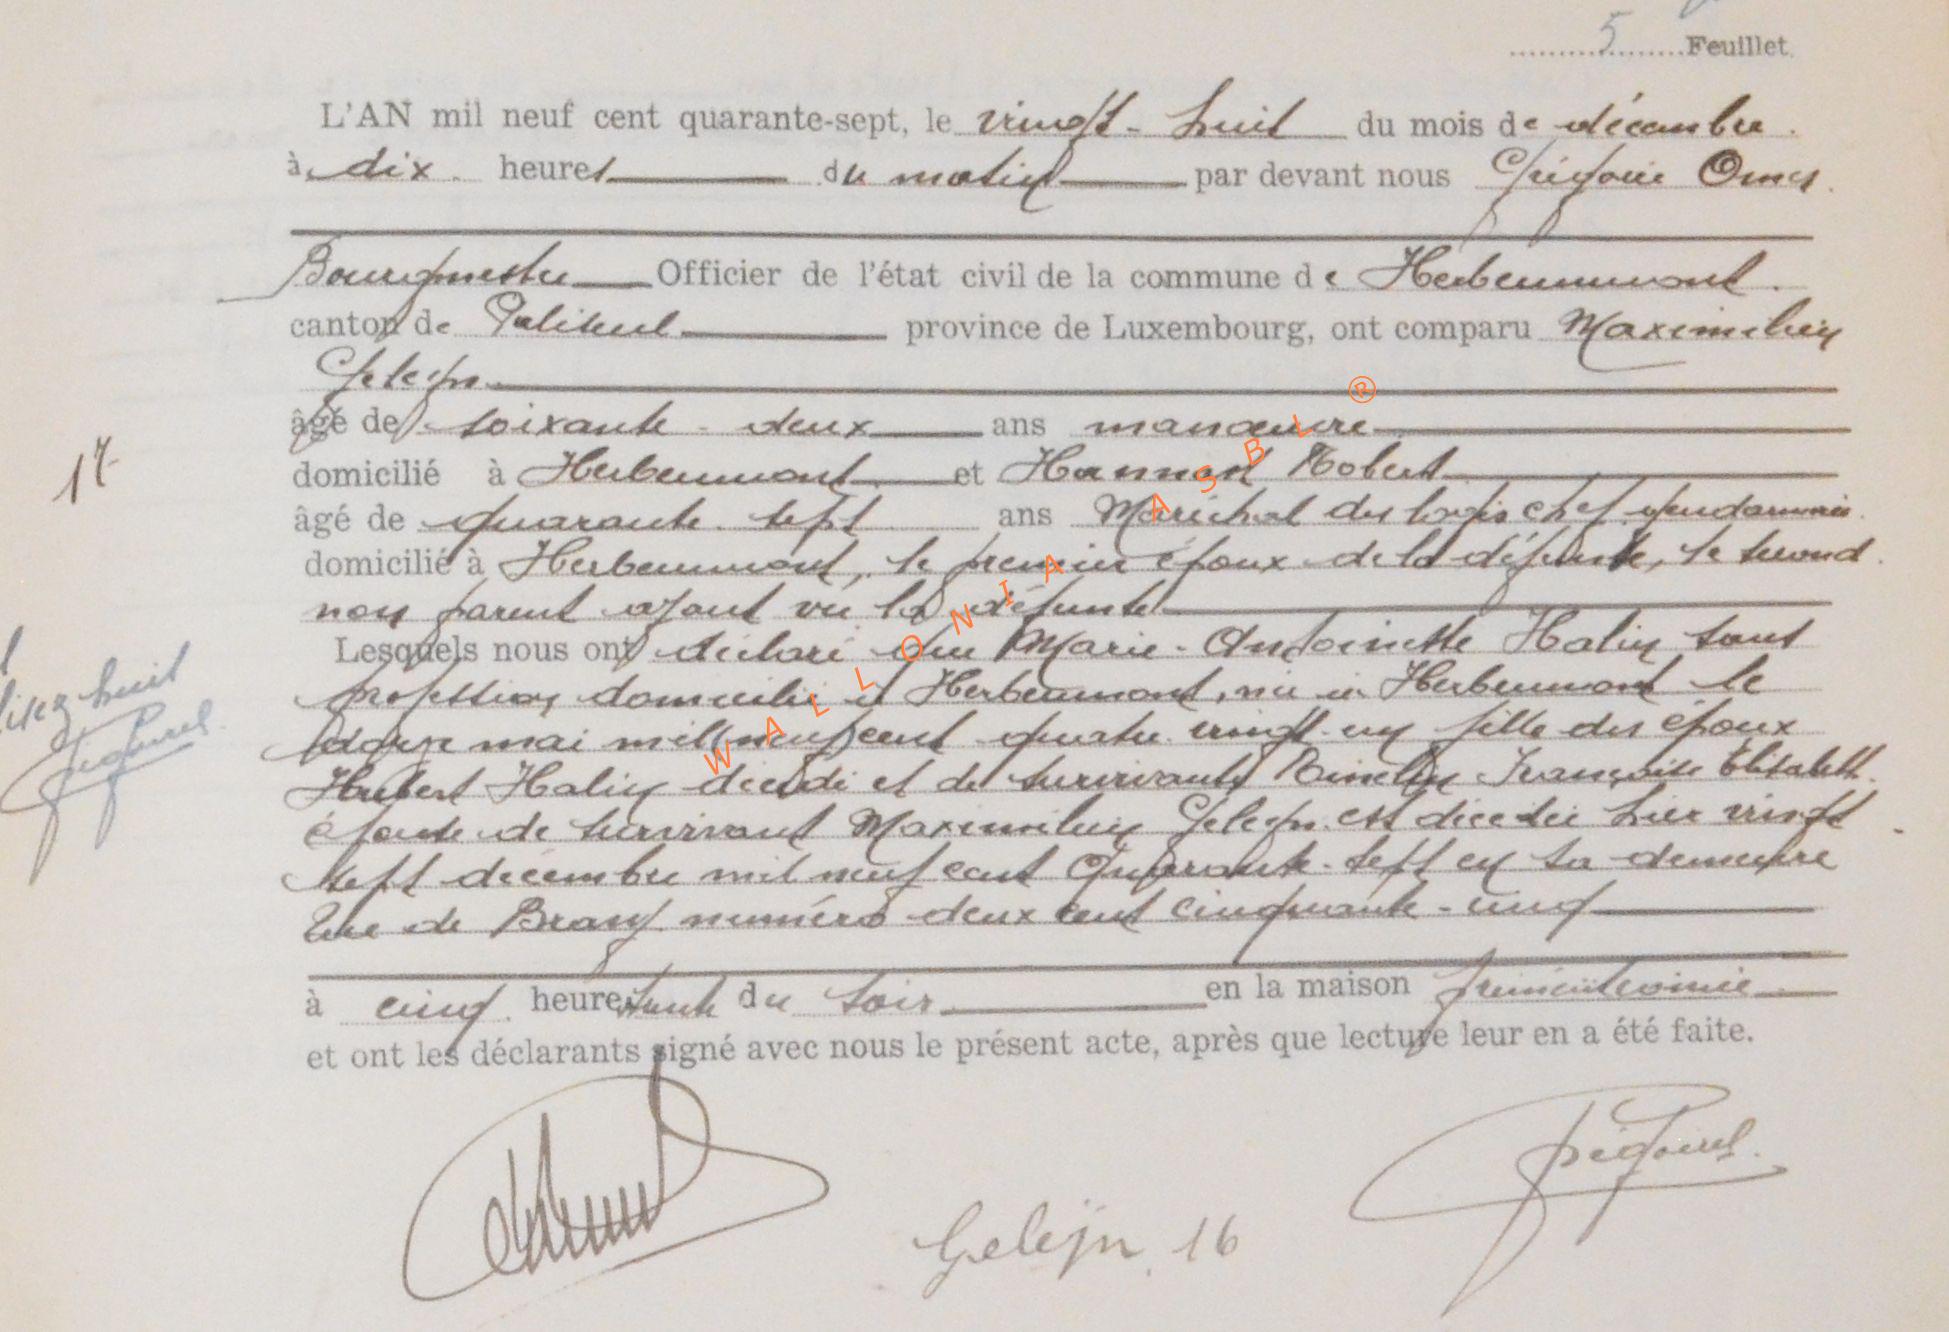 5 Feuillet.
L'AN mil neuf cent quarante-sept, le vingt-huit du mois de décembre.
à dix heures du matin par devant nous Grégoire Omer
Bourgmestre Officier de l'état civil de la commune de Herbeumont.
canton de Paliseul province de Luxembourg, ont comparu Maximilien
Geleyn
âgé de soixante-deux ans manœuvre
domicilié à Herbeumont et Hannon Robert
âgé de quarante-sept ans Maréchal des logis chef gendarmerie
domicilié à Herbeumont, le premier époux de la défunte, le second
non parent ayant vu la défunte
17
Lesquels nous ont déclaré que Marie-Antoinette Halin sans
profession, domiciliée à Herbeumont, née à Herbeumont le
mai mil (neuf) cent quatre vingt-un fille des époux
Hubert Halin décédé et de survivante Françoise Elisabeth.
épouse de survivant Maximilien Geleyn est décédée hier vingt
sept décembre mil neuf cent quarante-sept en sa demeure
rue de numéro deux cent cinquante-cinq
lisez huit
Grégoire
à cinq heures trente du soir en la maison
et ont les déclarants signé avec nous le présent acte, après que lecture leur en a été faite.
Grégoire
Geleyn 16
WALLONIA ASBL ®